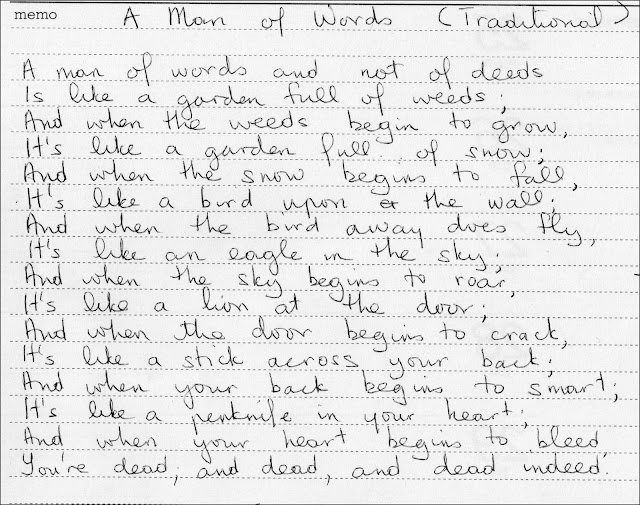 memo
A Man of Words (Traditional)
A man of words and not of deeds
Is like a garden full of weeds;
And when the weeds begin to grow,
It's like a garden full of snow;
And when the snow begins to fall,
It's like a bird upon the wall;
And when the bird away does fly,
It's like an eagle in the sky;
And when the sky begins to roar,
It's like a lion at the door;
And when the door begins to crack,
It's like a stick across your back;
And when your back begins to smart;
It's like a penknife in your heart;
And when your heart begins to bleed,
You're dead, and dead, and dead indeed.